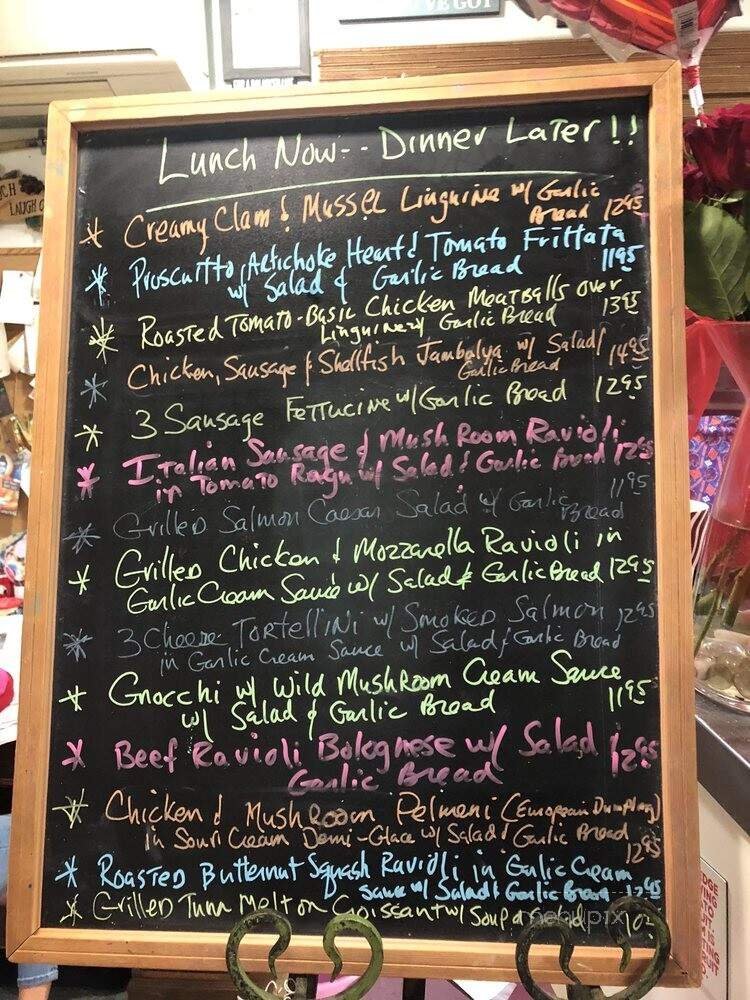 VE GOT
CH
LAUGH O
Lunch Now-- Dinner Later!!
* Creamy Clam & Mussel Linguine w/ Garlic
Bread 12.95
* Proscuitto, Artichoke Heart & Tomato Frittata
w/ Salad & Garlic Bread 11.95
* Roasted Tomato-Basic Chicken Meatballs over
Linguine w/ Garlic Bread 13.95
* Chicken, Sausage & Shellfish Jambalya w/ Salad/ 14.95
Garlic Bread
* 3 Sausage Fettucine w/ Garlic Bread 12.95
* Italian Sausage & Mushroom Ravioli
in Tomato Ragu w/ Salad & Garlic Bread 12.95
* Grilled Salmon Caesar Salad w/ Garlic 11.95
Bread
* Grilled Chicken & Mozzarella Ravioli in
Garlic Cream Sauce w/ Salad & Garlic Bread 12.95
* 3 Cheese Tortellini w/ Smoked Salmon 12.95
in Garlic Cream Sauce w/ Salad & Garlic Bread
* Gnocchi w/ Wild Mushroom Cream Sauce
w/ Salad & Garlic Bread 11.95
* Beef Ravioli Bolognese w/ Salad 12.95
Garlic Bread
* Chicken & Mushroom Pelmeni (European Dumpling)
in Sour Cream Demi-Glace w/ Salad & Garlic Bread
12.95
* Roasted Butternut Squash Ravioli in Garlic Cream
Sauce w/ Salad & Garlic Bread 12.95
* Grilled Tuna Melt on Croissant w/ Soup
menupix